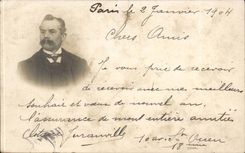 Paris le 2 Janvier 1904
Chers Amis
Je vous prie de recevoir
de recevoir avec mes meilleurs
souhait et vœux de nouvel an.
l'assurance de mon entière amitiée
Duranville
10 St Ouen